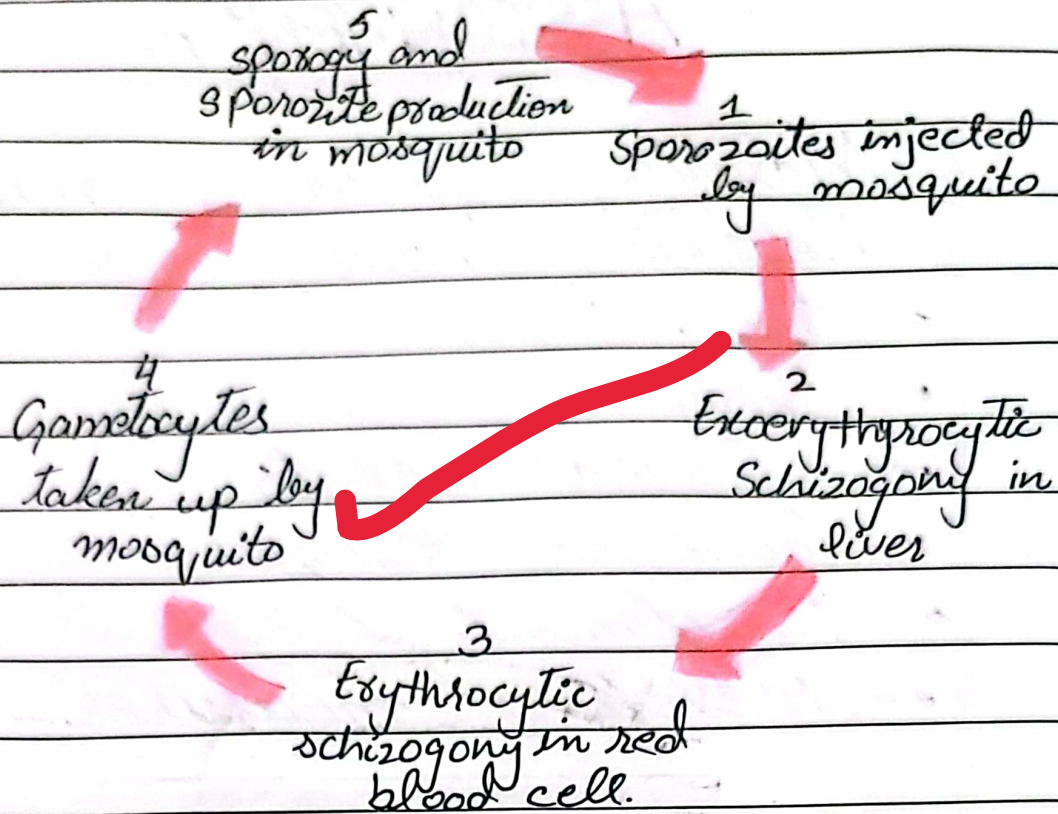 5
sporogy and
sporozite production
in mosquito
1
Sporozoites injected
by mosquito
2
Exoerythyrocytic
Schizogony in
liver
3
Erythrocytic
schizogony in red
blood cell.
4
Gametocytes
taken up by
mosquito